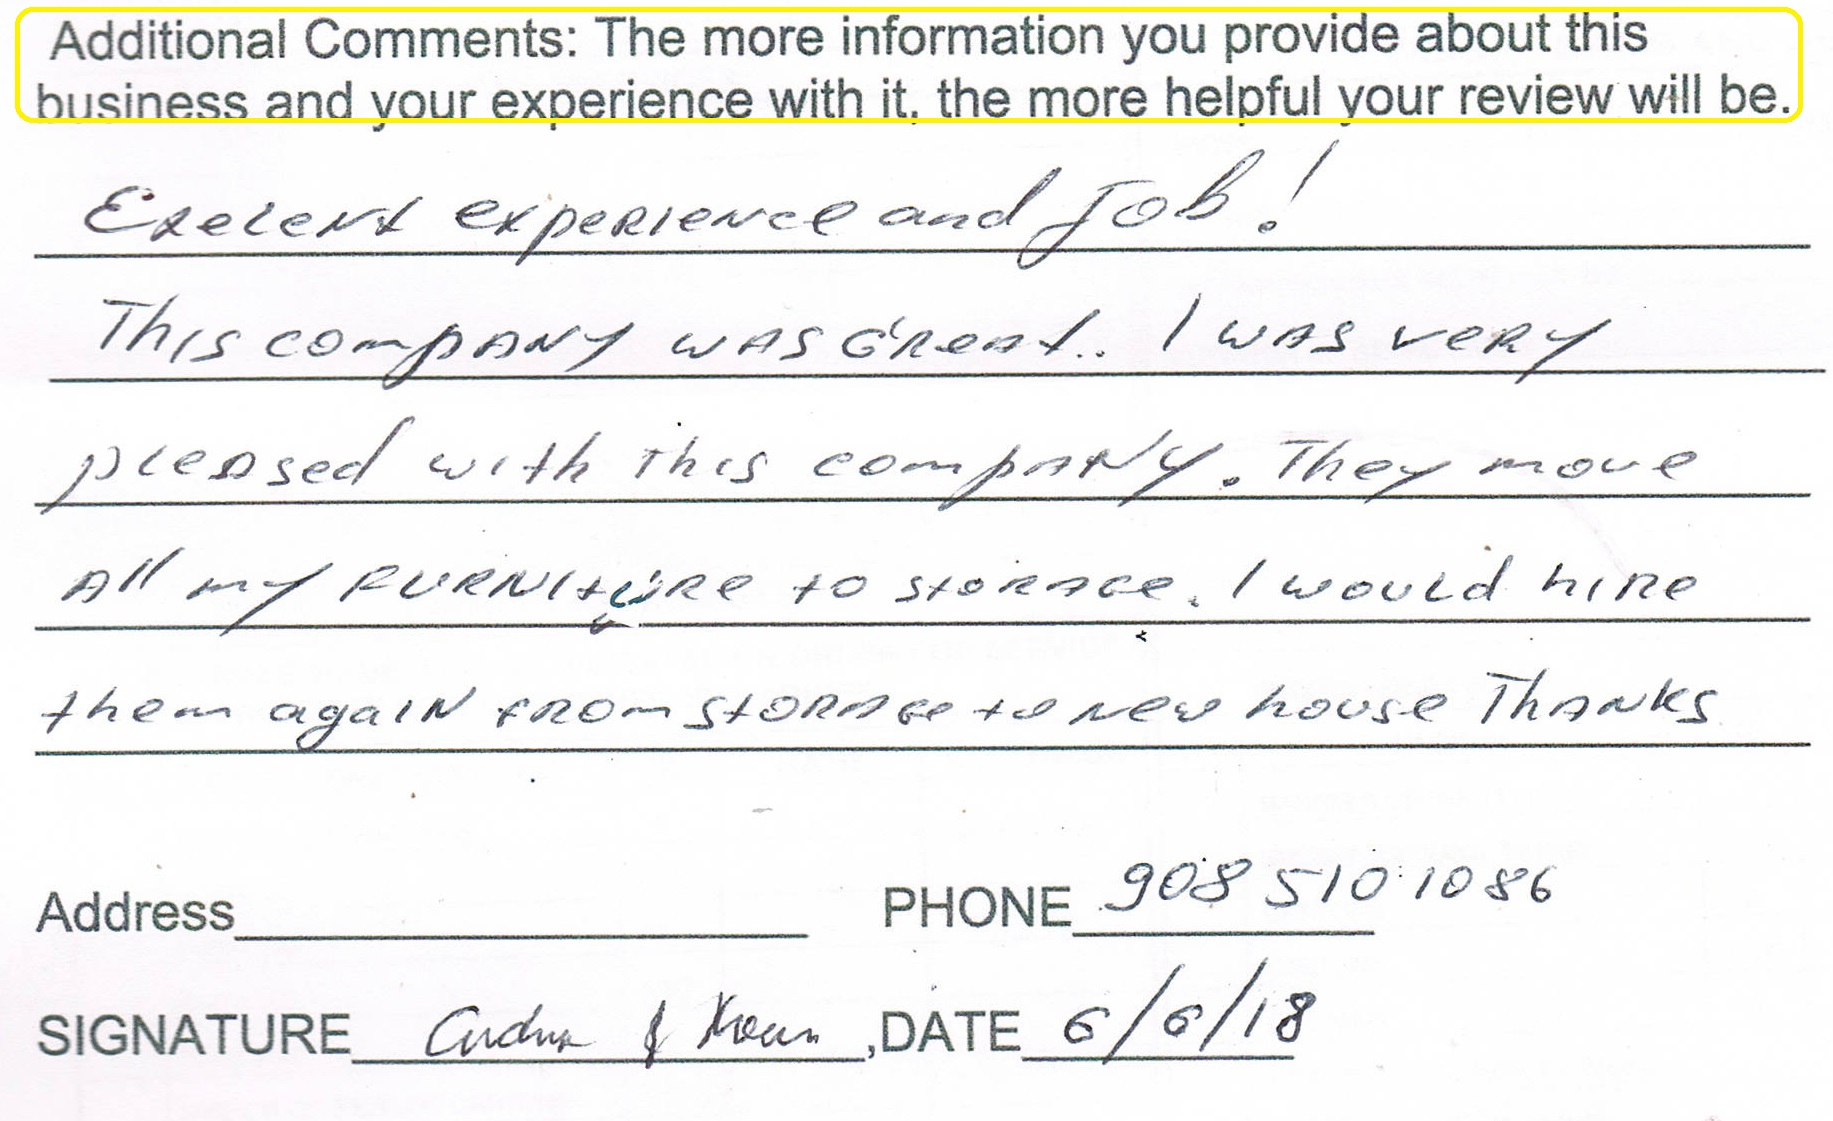 Additional Comments: The more information you provide about this
business and your experience with it, the more helpful your review will be.
Exelent experience and Job!
This company was Great.. I was very
pleased with this company. They move
All my furniture to storage. I would hire
them again from storage to new house Thanks
Address PHONE 908 510 1086
SIGNATURE , DATE 6/6/18